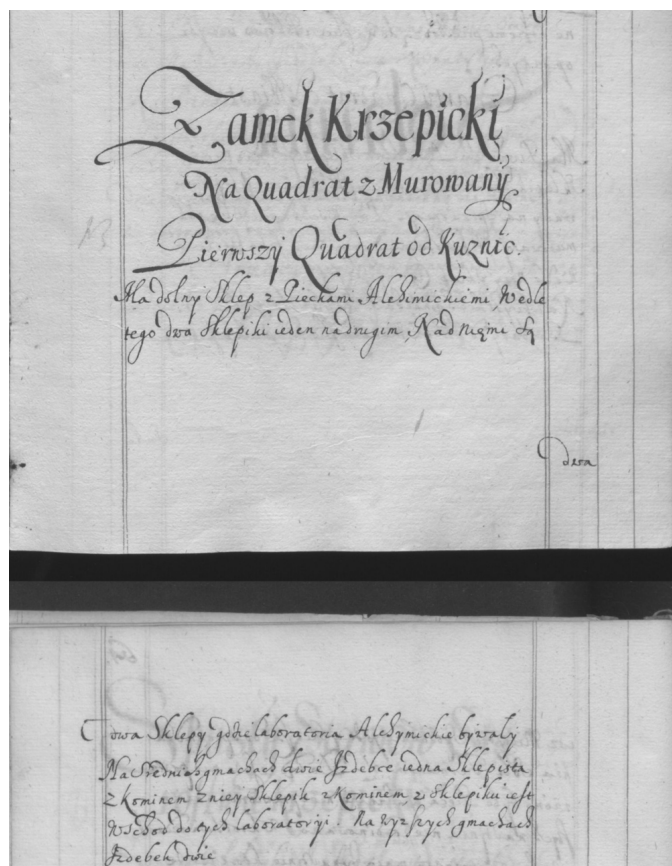 Zamek Krzepicki
Na Quadrat z Murowany
Pierwszy Quadrat od Kuznic.
Ma dolny Sklep z Pieckami Alchimickiemi, Wedle
tego dwa Sklepiki ieden na drugim, Nad niemi są
dwa
dwa Sklepy gdzie laboratoria Alchymickie bywały
Na Srednich gmachach dwie Jzdebce iedna Sklepista
z Kominem z niey Sklepik z Kominem, z Sklepiku iest
Wschod do tych laboratoryi. Na wyzszych gmachach
Jzdebek dwie